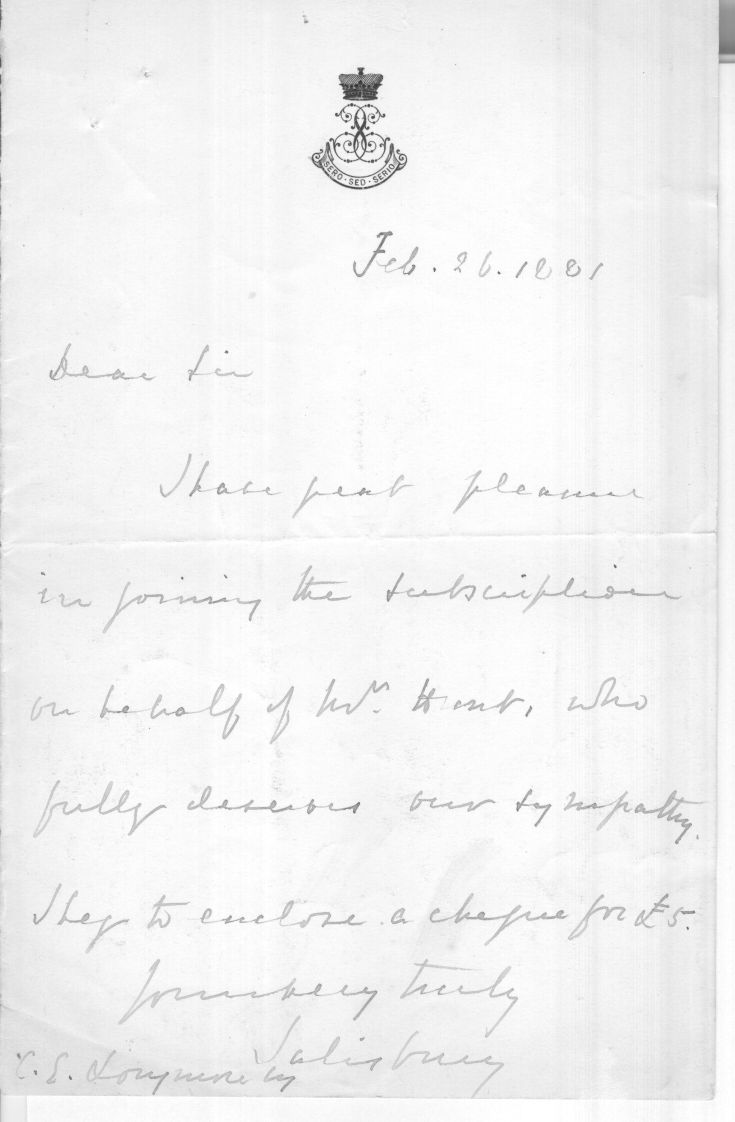 SERO · SED · SERIO
Feb. 26. 1881
Dear Sir
I have great pleasure
in joining the subscription
on behalf of Hunt, who
fully deserves our sympathy.
I beg to enclose a cheque for £5.
Yours very truly
Salisbury
C. E. Longmore Esq